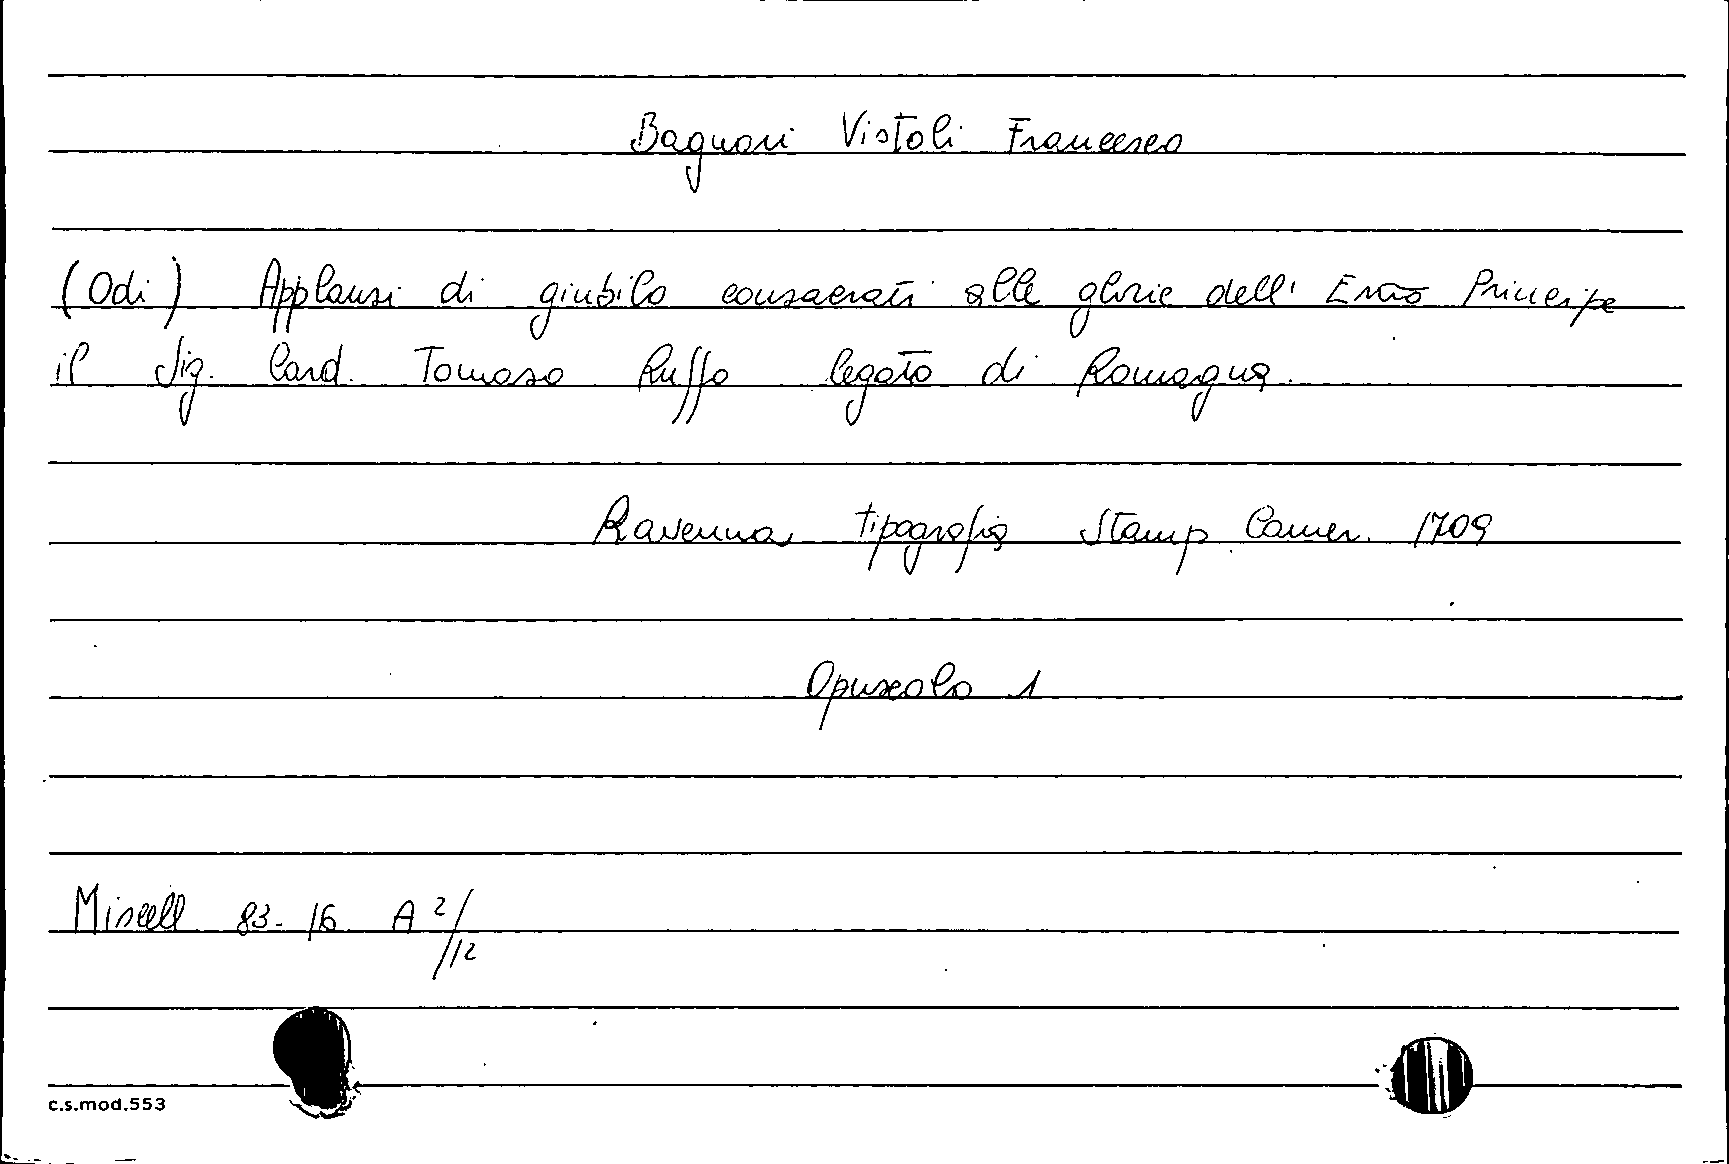 Bagnari Vistoli Francesco
(Odi) Applausi di giubilo consacrati alle glorie dell' Emo Principe
il Sig. Card. Tomaso Ruffo legato di Romagna.
Ravenna tipografia Stamp. Camer. 1709
Opuscolo 1
Miscell 83-16 A 2/12
c.s.mod.553